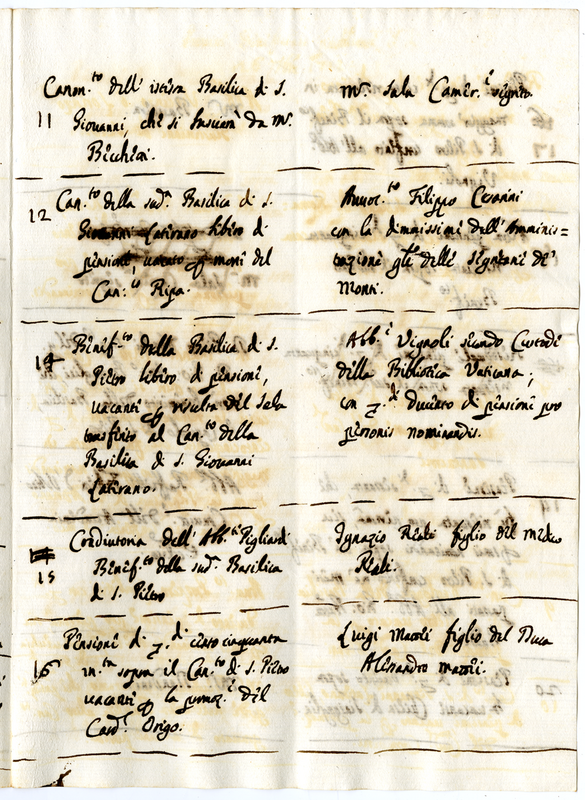 Canon.to dell' istessa Basilica di S.
11 Giovanni, che si lascierà da Mr.
Bicchieri.
Mr. Sala Camer.e segreto.
12 Can.to della sud.a Basilica di S.
Giovanni Laterano libero di
pensioni, vacato per morte del
Can.co Ripa.
Filippo Cesarini
con la dimmissione dell' Amminis=
trazione gnle delli Signioni de'
Monti.
14 Benef.to della Basilica di S.
Pietro libero di pensioni,
vacante per resulta del Sala
trasferito al Can.to della
Basilica di S. Giovanni
Laterano.
Abb.e Vignoli secondo Custode
della Biblioteca Vaticana;
con di ducato di pensione pro
personis nominandis.
15 Coadiutoria dell' Abb.e Pegliardi
Benef.to della sud.a Basilica
di S. Pietro
Ignazio Reali figlio del Medico
Reali.
16 Pensione di di cento cinquanta
m.ta sopra il Can.to di S. Pietro
vacante per la promoz.e del
Card.l Origo.
Luigi Mattei figlio del Duca
Alessandro Mattei.